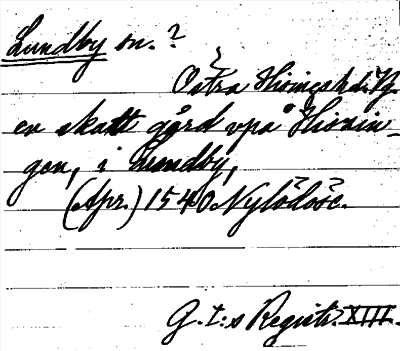 Lundby sn.?
Östra Hisings hd. Vg.
en skatt gård vpå Hisin-
gen, i Lundby,
(Apr.) 1540. Nylödöse.
G. I:s Registr. XIII.